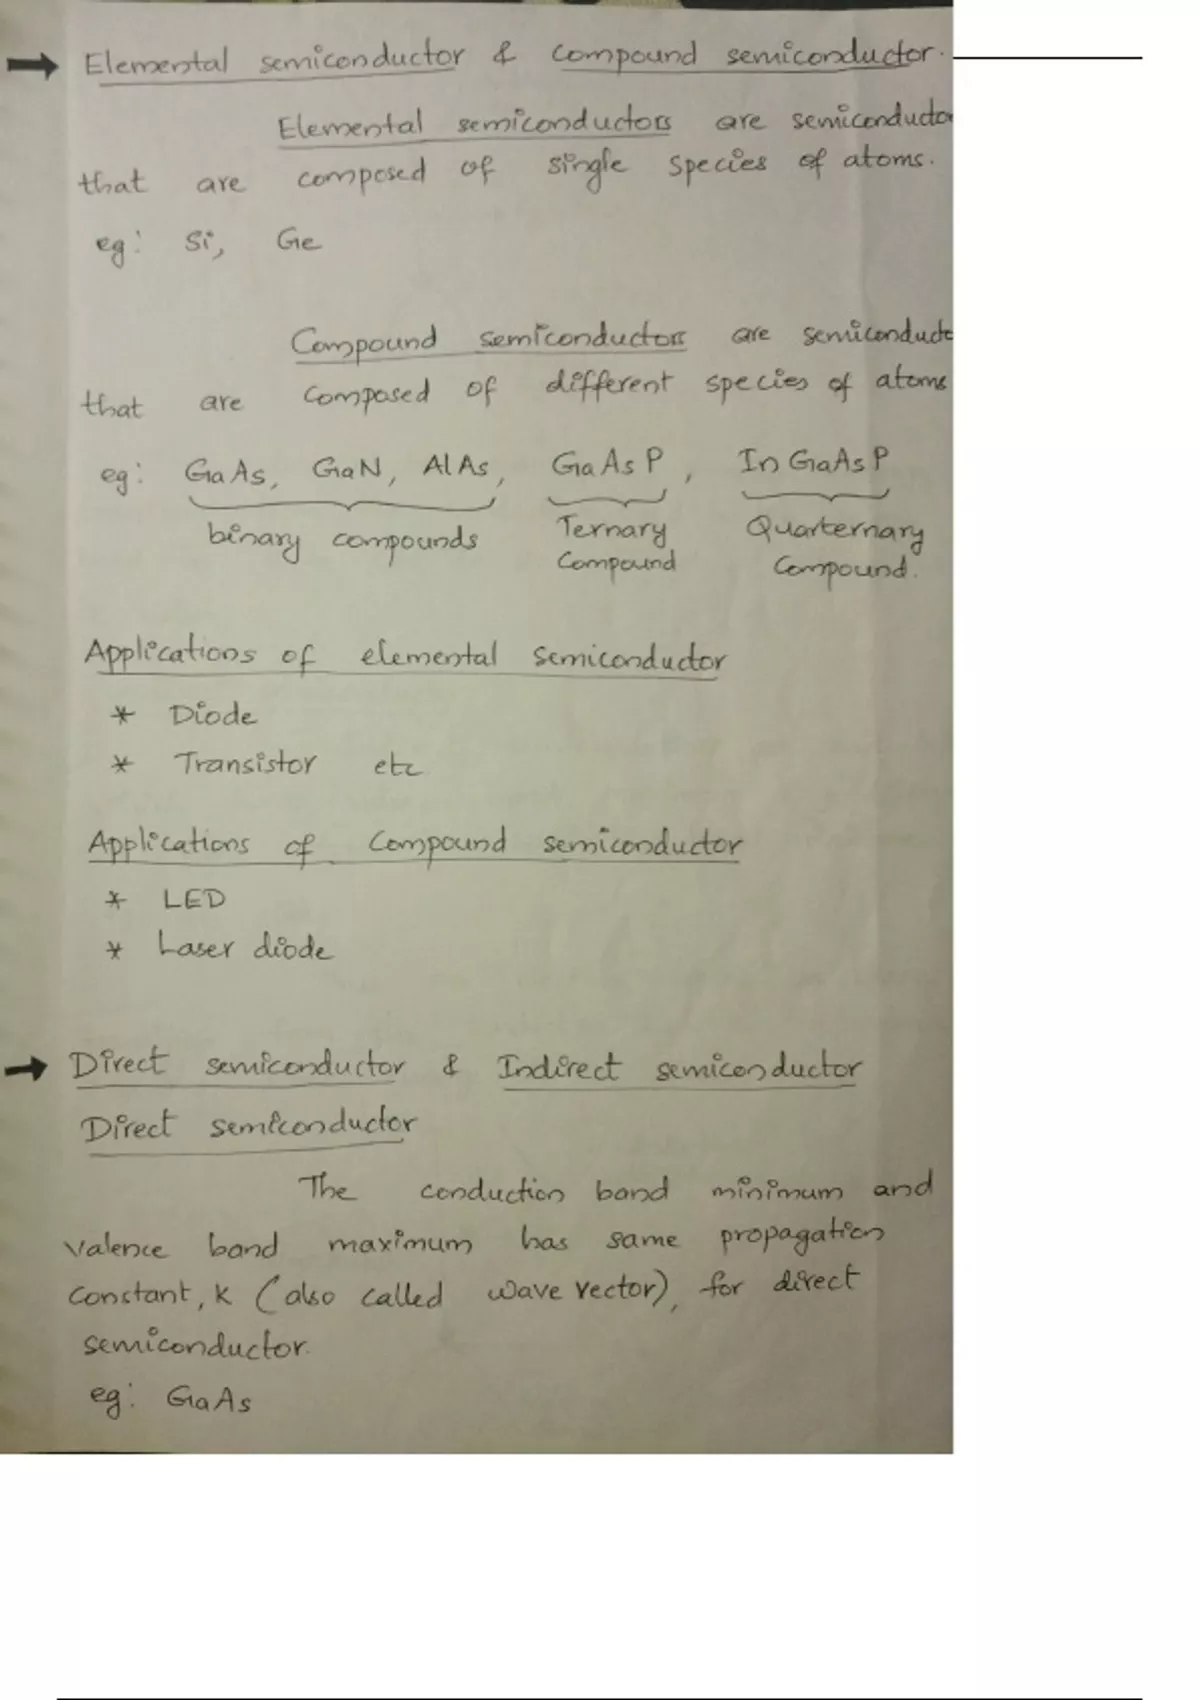 Elemental semiconductor & Compound semiconductor.
Elemental semiconductors are semiconductor
that are composed of single species of atoms.
eg: Si, Ge
Compound semiconductors are semiconducto
that are composed of different species of atoms
eg: GaAs, GaN, AlAs, GaAsP, InGaAsP
binary compounds Ternary Compound Quarternary Compound.
Applications of elemental semiconductor
* Diode
* Transistor etc
Applications of Compound semiconductor
* LED
* Laser diode
Direct semiconductor & Indirect semiconductor
Direct semiconductor
The conduction band minimum and
valence band maximum has same propagation
constant, k (also called wave vector), for direct
semiconductor.
eg: GaAs